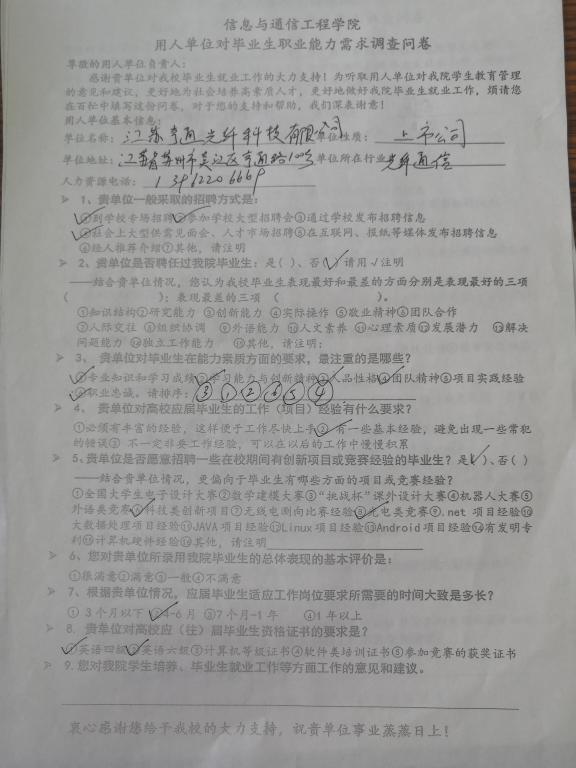 信息与通信工程学院
用人单位对毕业生职业能力需求调查问卷
尊敬的用人单位负责人：
感谢贵单位对我校毕业生就业工作的大力支持！为听取用人单位对我院学生教育管理
的意见和建议，更好地为社会培养高素质人才，更好地做好我院毕业生就业工作，烦请您
在百忙中填写这份问卷，对于您的支持和帮助，我们深表谢意！
用人单位基本信息：
单位名称：江苏亨通光纤科技有限公司 单位性质：上市公司
单位地址：江苏省苏州市吴江区亨通路100号 单位所在行业 光纤通信
人力资源电话：13962206669
1、贵单位一般采取的招聘方式是：
①到学校专场招聘②参加学校大型招聘会③通过学校发布招聘信息
④社会上大型供需见面会、人才市场招聘⑤在互联网、报纸等媒体发布招聘信息
⑥经人推荐介绍⑦其他，请注明
2、贵单位是否聘任过我院毕业生：是( )、否(√)请用√注明
——结合贵单位情况，您认为我校毕业生表现最好和最差的方面分别是表现最好的三项
( )；表现最差的三项( )。
①知识结构②研究能力 ③创新能力 ④实际操作 ⑤敬业精神⑥团队合作
⑦人际交往 ⑧组织协调 ⑨外语能力 ⑩人文素养 ⑪心理素质⑫发展潜力 ⑬解决
问题能力 ⑭独立工作能力 ⑮其他，请注明：
3、 贵单位对毕业生在能力素质方面的要求，最注重的是哪些？
①专业知识和学习成绩②学习能力与创新精神③人品性格④团队精神⑤项目实践经验
⑥职业忠诚。请排序：③①②⑥⑤④
4、 贵单位对高校应届毕业生的工作（项目）经验有什么要求？
①必须有丰富的经验，这样便于工作尽快上手②有一些基本经验，避免出现一些常犯
的错误③ 不一定非要工作经验，可以在以后的工作中慢慢积累
5、贵单位是否愿意招聘一些在校期间有创新项目或竞赛经验的毕业生？是(√)、否( )
——结合贵单位情况，更偏向于毕业生有哪些方面的项目或竞赛经验？
①全国大学生电子设计大赛②数学建模大赛③“挑战杯”课外设计大赛④机器人大赛⑤
外语类竞赛⑥科技类创新项目⑦无线电测向比赛经验⑧光电类竞赛⑨.net 项目经验⑩
大数据处理项目经验⑪JAVA项目经验⑫Linux项目经验⑬Android项目经验⑭有发明专
利⑮计算机硬件经验⑯其他，请注明
6、您对贵单位所录用我院毕业生的总体表现的基本评价是：
①很满意②满意③一般④不满意
7、根据贵单位情况，应届毕业生适应工作岗位要求所需要的时间大致是多长？
① 3个月以下②4-6月 ③7个月-1年 ④1年以上
8. 贵单位对高校应（往）届毕业生资格证书的要求是？
①英语四级②英语六级③计算机等级证书④软件类培训证书⑤参加竞赛的获奖证书
9.您对我院学生培养、毕业生就业工作等方面工作的意见和建议。
衷心感谢您给予我校的大力支持，祝贵单位事业蒸蒸日上！